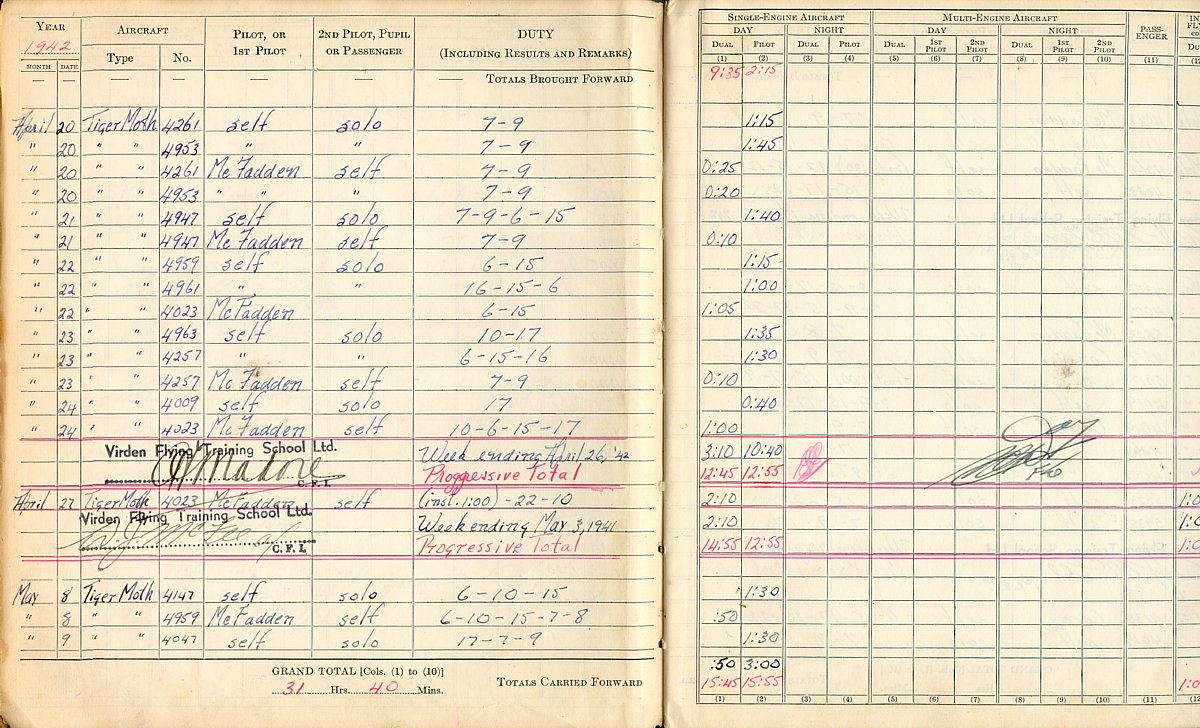 YEAR 1942 AIRCRAFT PILOT, OR 1ST PILOT 2ND PILOT, PUPIL OR PASSENGER DUTY (INCLUDING RESULTS AND REMARKS) SINGLE-ENGINE AIRCRAFT MULTI-ENGINE AIRCRAFT PASS-ENGER
DAY NIGHT DAY NIGHT
MONTH DATE Type No. DUAL PILOT DUAL PILOT DUAL 1ST PILOT 2ND PILOT DUAL 1ST PILOT 2ND PILOT
(1) (2) (3) (4) (5) (6) (7) (8) (9) (10) (11) (12
— — — — — — — TOTALS BROUGHT FORWARD 9:35 2:15
April 20 Tiger Moth 4261 self solo 7-9 1:15
" 20 " " 4953 " " 7-9 1:45
" 20 " " 4261 McFadden self 7-9 0:25
" 20 " " 4953 " " " 7-9 0:20
" 21 " " 4947 self solo 7-9-6-15 1:40
" 21 " " 4947 McFadden self 7-9 0:10
" 22 " " 4959 self solo 6-15 1:15
" 22 " " 4961 " " 16-15-6 1:00
" 22 " " 4023 McFadden 6-15 1:05
" 23 " " 4963 self solo 10-17 1:35
" 23 " " 4257 " " 6-15-16 1:30
" 23 " " 4257 McFadden self 7-9 0:10
" 24 " " 4009 self solo 17 0:40
" 24 " " 4023 McFadden self 10-6-15-17 1:00
Virden Flying Training School Ltd. Week ending April 26, '42 3:10 10:40
C.F.I. Progressive Total 12:45 12:55
April 27 Tiger Moth 4023 McFadden self (inst. 1:00) -22-10 2:10 1:0
Virden Flying Training School Ltd. Week ending May 3, 1941 2:10 1:0
C.F.I. Progressive Total 14:55 12:55 1:0
May 8 Tiger Moth 4147 self solo 6-10-15 1:30
" 8 " " 4959 McFadden self 6-10-15-7-8 :50
" 9 " " 4047 self solo 17-7-9 1:30
GRAND TOTAL [Cols. (1) to (10)] :50 3:00
31 Hrs. 40 Mins. TOTALS CARRIED FORWARD 15:45 15:55 1:0
(1) (2) (3) (4) (5) (6) (7) (8) (9) (10) (11) (12